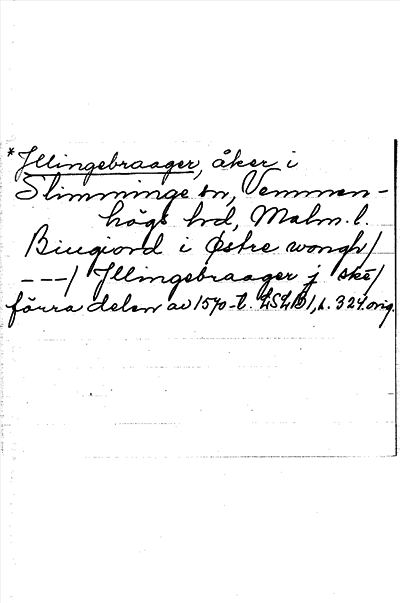 *Jllingebraager, åker i
Slimminge sn, Vemmen-
högs hd, Malm. l.
Biugiord i Østre wongh/
---/ Jllingebraager j ske/
förra delen av 1570-t. LSLB1, s. 324. orig.